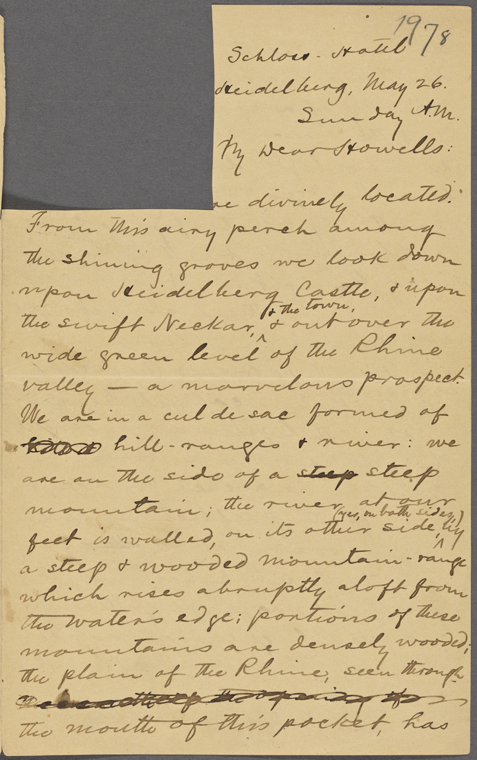 1978
Schloss-Hotel
Heidelberg, May 26.
Sunday A.M.
My Dear Howells:
re divinely located.
From this airy perch among
the shining groves we look down
upon Heidelberg Castle, & upon
the swift Neckar, & the town, & out over the
wide green level of the Rhine
valley — a marvelous prospect.
We are in a cul de sac formed of
hill-ranges & river: we
are on the side of a steep steep
mountain; the river at our
feet is walled, on its other side, (yes, on both sides,) by
a steep & wooded mountain-range
which rises abruptly aloft from
the water's edge; portions of these
mountains are densely wooded;
the plain of the Rhine, seen through
the mouth of this pocket, has